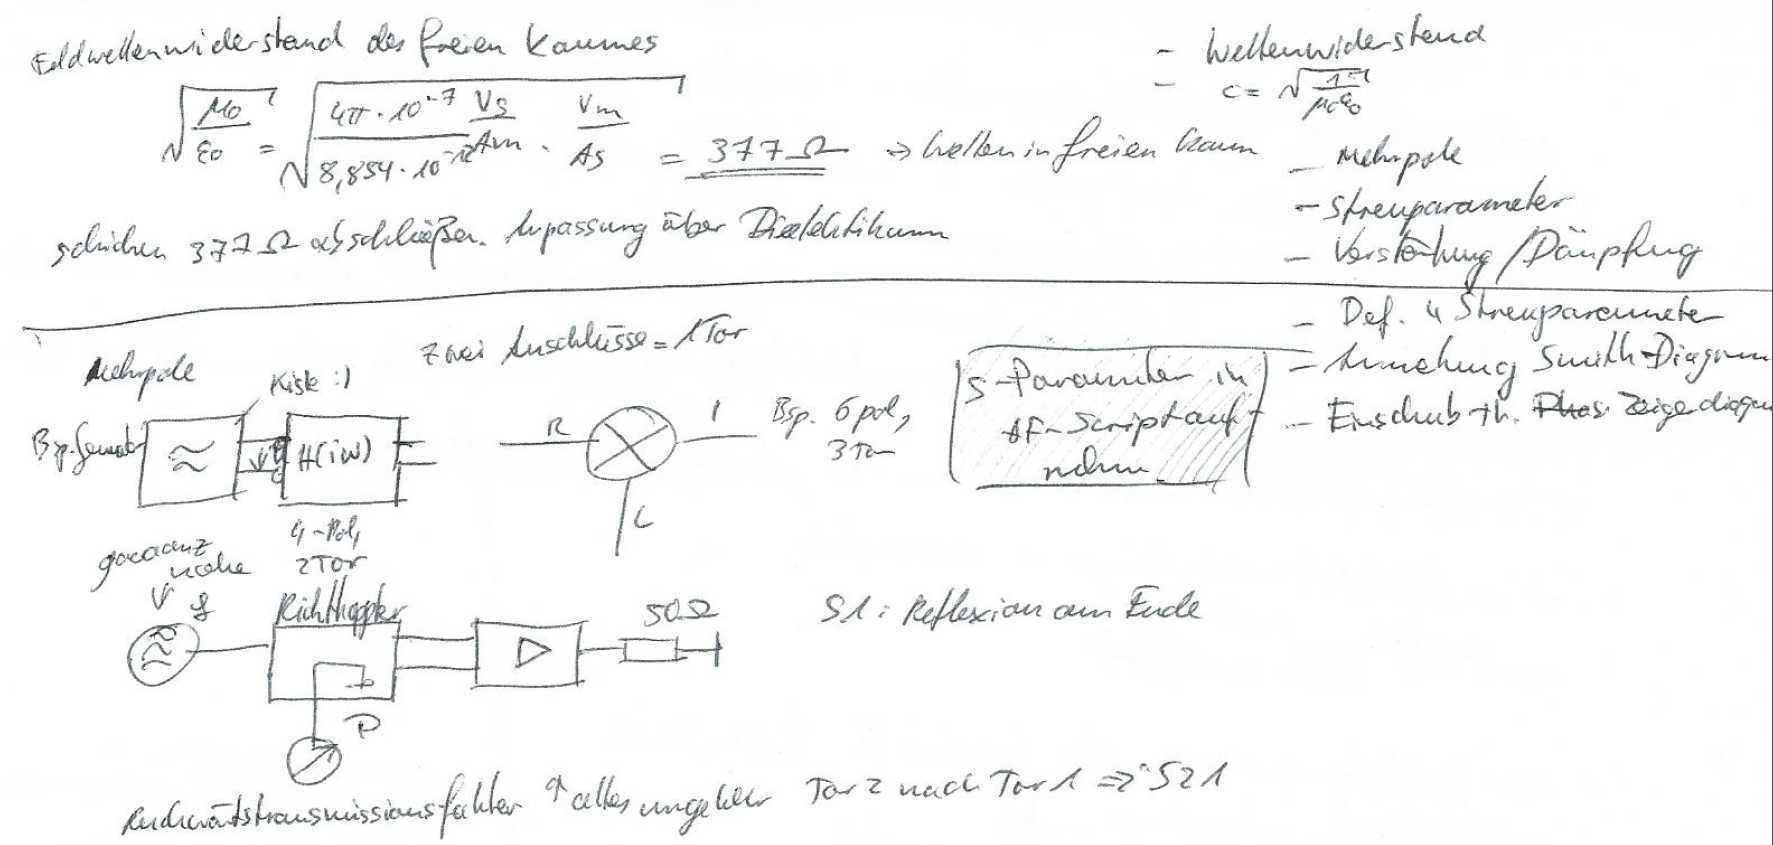 Feldwellenwiderstand des freien Raumes
√(μ0/ε0) = √(4π·10^-7 Vs/Am / 8,854·10^-12 · Vm/As) = 377Ω ⇒ Wellen in freien Raum
schicken 377Ω abschließen. Anpassung über Dielektrikum
- Wellenwiderstand
- c = √(1/μ0ε0)
- Mehrpole
- Streuparameter
- Verstärkung/Dämpfung
- Def. 4 Streuparameter
- Smith-Diagram
- Einschub th. Zeigerdiagram
Mehrpole
zwei Anschlüsse = 1 Tor
Kiste :)
Bsp.
≈
H(iω)
4-Pol,
2Tor
R
I
L
Bsp. 6pol,
3Tor
S-Parameter in
HF-Script auf-
nehm
V
Richtkoppler
50Ω
P
S1: Reflexion am Ende
Rückwärtstransmissionsfaktor alles umgekehr Tor 2 nach Tor 1 ⇒ S21